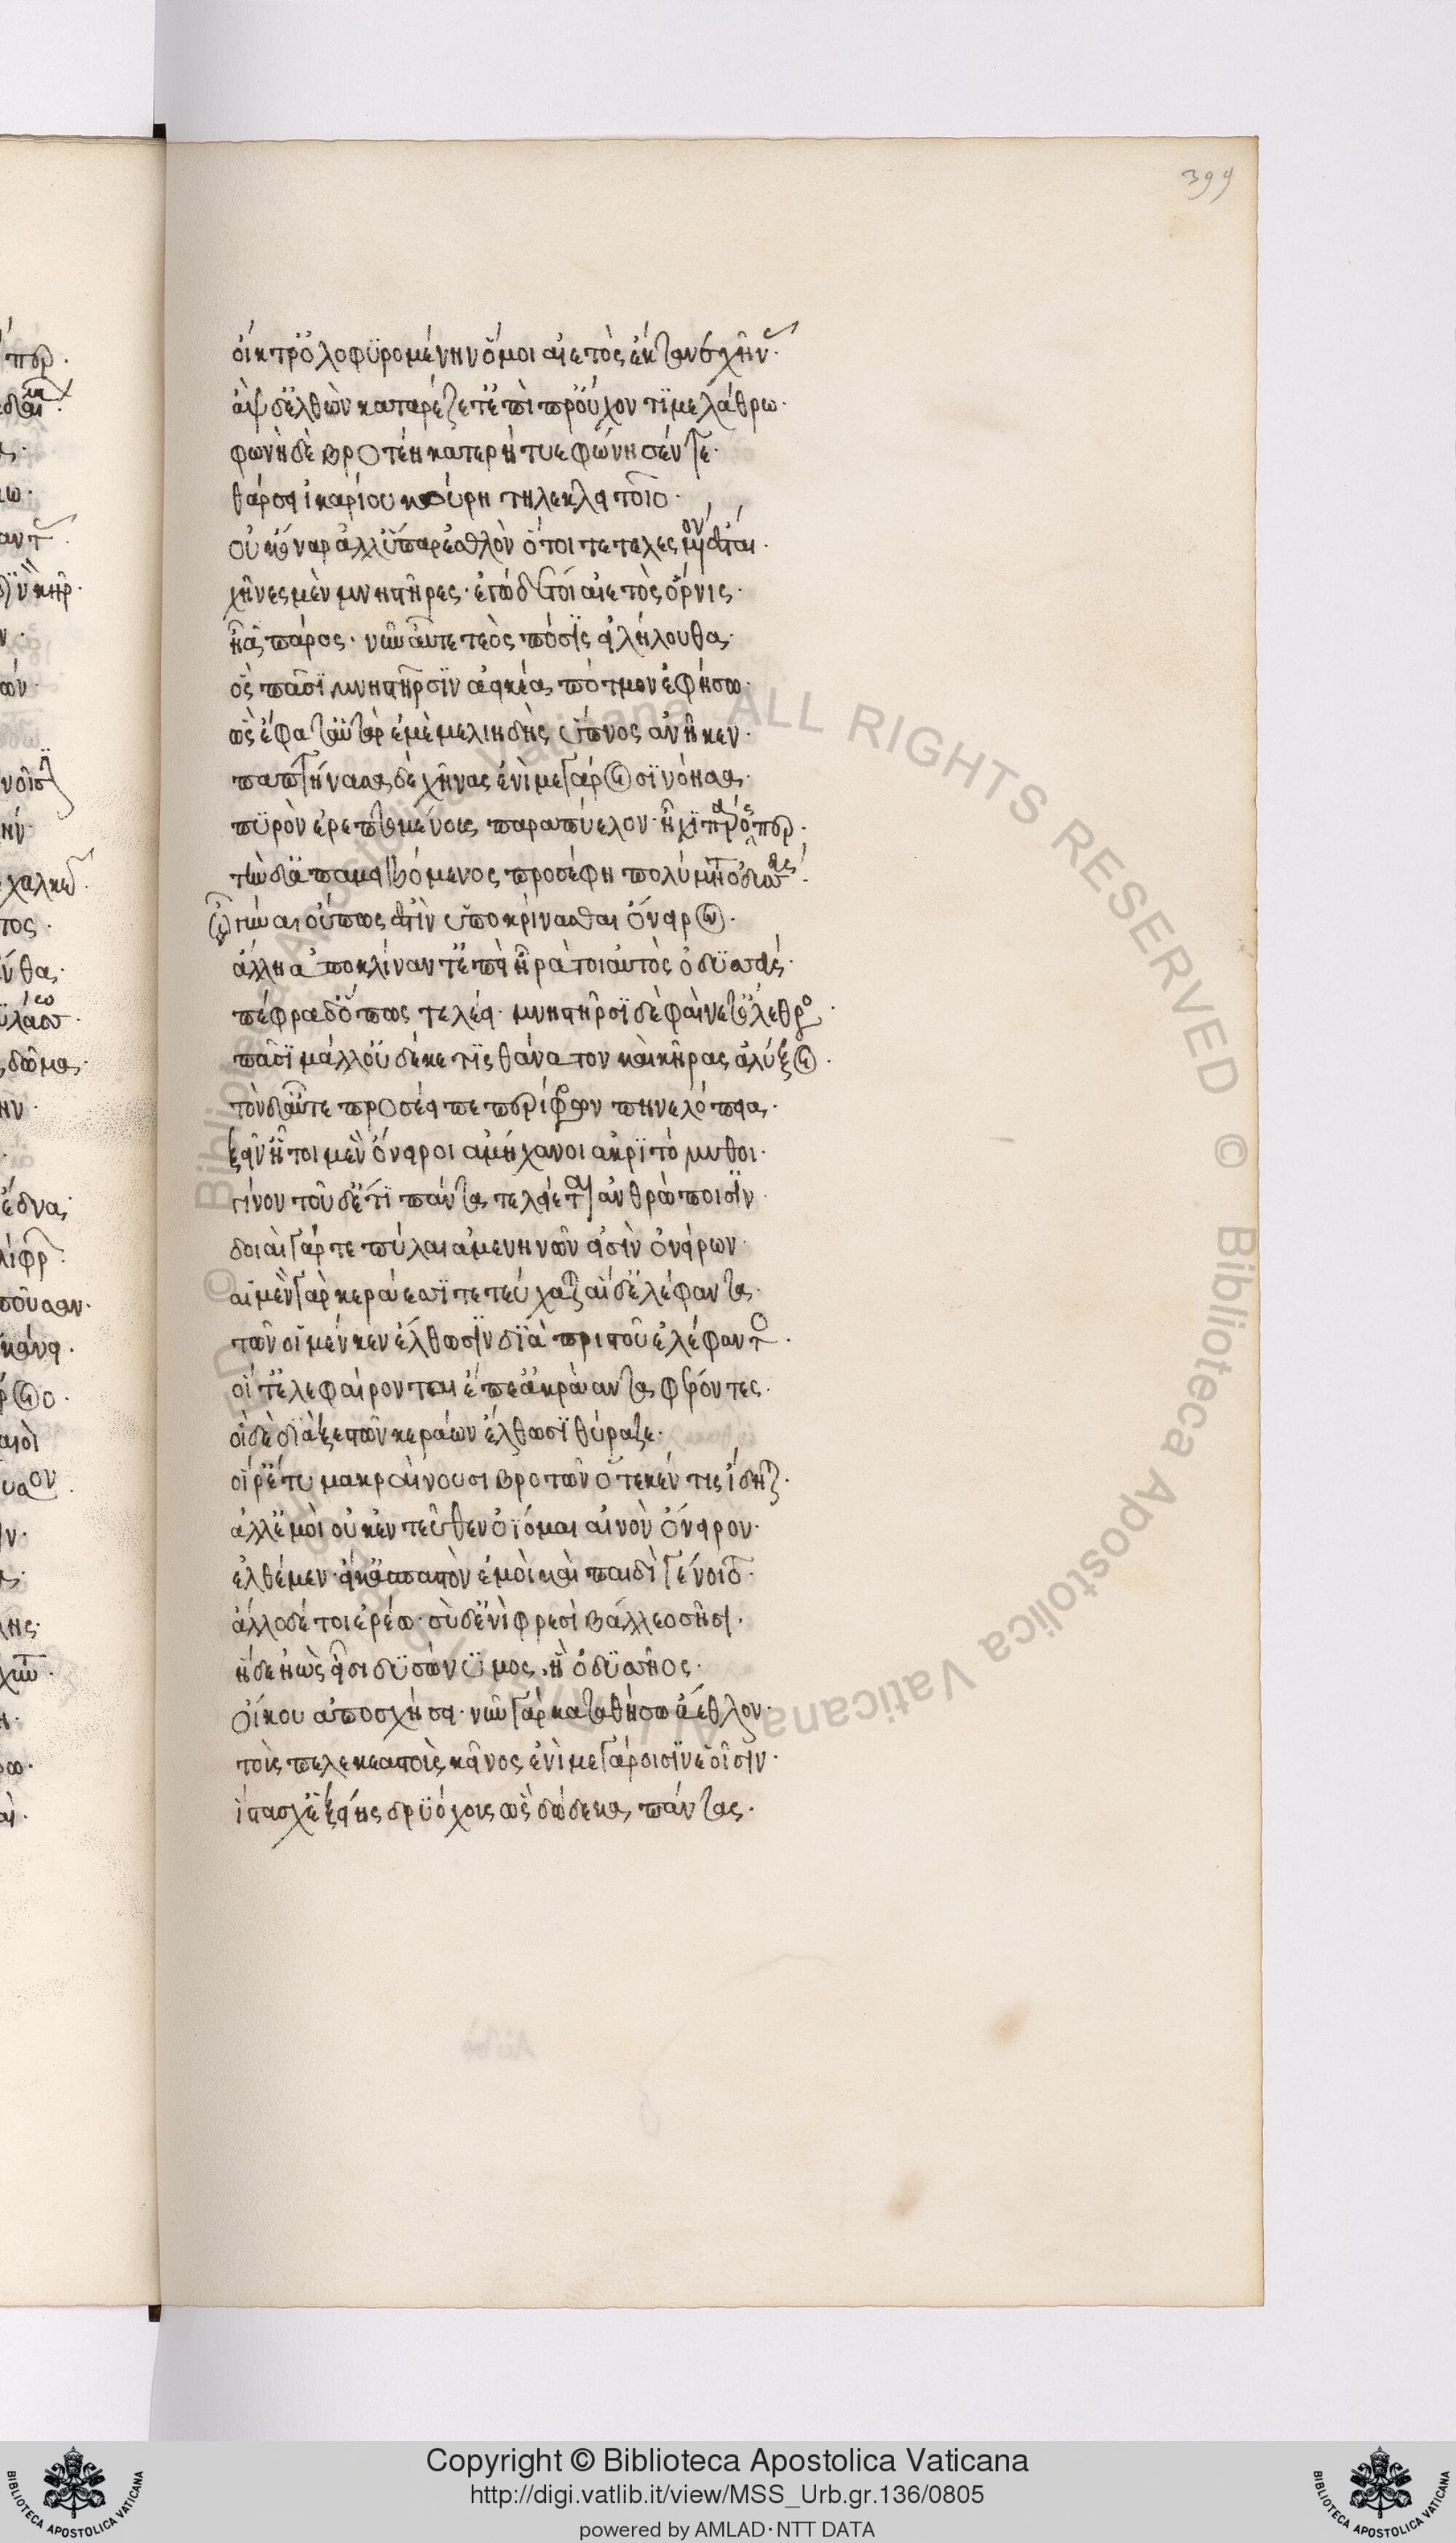 399
οἴκτρ' ὀλοφυρομένην ὅ μοι αἰετὸς ἔκτανε χῆνας.
ἂψ δ' ἐλθὼν κατ' ἄρ' ἕζετ' ἐπὶ προὔχοντι μελάθρω.
φωνῆ δὲ βροτέη κατερήτυε φώνησέν τε.
θάρσει ἰκαρίου κούρη τηλεκλειτοῖο.
οὐκ ὄναρ ἀλλ' ὕπαρ ἐσθλὸν ὅ τοι τετελεσμένον ἔσται.
χῆνες μὲν μνηστῆρες. ἐγὼ δέ τοι αἰετὸς ὄρνις.
ἦα πάρος. νῦν αὖτε τεὸς πόσις εἰλήλουθα.
ὃς πᾶσι μνηστῆρσιν ἀεικέα πότμον ἐφήσω.
ὣς ἔφατ' αὐτὰρ ἐμὲ μελιηδὴς ὕπνος ἀνῆκεν.
παπτήνασα δὲ χῆνας ἐνὶ μεγάροισι νόησα.
πυρὸν ἐρεπτομένους παρα πύελον. ἧχι πάρος περ.
τὴν δ' ἀπαμειβόμενος προσέφη πολύμητις ὀδυσσεύς.
ὦ γύναι οὔπως ἔστιν ὑποκρίνασθαι ὄνειρον.
ἄλλη ἀποκλίναντ' ἐπειὴ ῥά τοι αὐτὸς ὀδυσσεὺς.
πέφραδ' ὅπως τελέει. μνηστῆρσι δὲ φαίνετ' ὄλεθρος.
πᾶσι μάλ' οὐδέ κε τις θάνατον καὶ κῆρας ἀλύξοι.
τὸν δ' αὖτε προσέειπε περίφρων πηνελόπεια.
ξεῖν' ἤτοι μὲν ὄνειροι ἀμήχανοι ἀκριτόμυθοι.
γίνοντ' οὐδέ τι πάντα τελείεται ἀνθρώποισιν.
δοιαὶ γάρ τε πύλαι ἀμενηνῶν εἰσὶν ὀνείρων.
αἱ μὲν γὰρ κεράεσσι τετεύχαται αἱ δ' ἐλέφαντα.
τῶν οἳ μέν κεν ἔλθωσιν διὰ πριστοῦ ἐλέφαντος.
οἵ τ' ἐλεφαίρονται ἔπε' ἀκράαντα φέροντες.
οἱ δὲ διὰ ξεστῶν κεράων ἔλθωσι θύραζε.
οἵ ῥ' ἔτυμα κραίνουσι βροτῶν ὅτε κέν τις ἴδηται.
ἀλλ' ἐμοὶ οὐκ ἐντεῦθεν ὀΐομαι αἰνὸν ὄνειρον.
ἐλθέμεν. ἦ κ' ἀσπαστὸν ἐμοὶ καὶ παιδὶ γένοιτο.
ἄλλο δέ τοι ἐρέω. σὺ δ' ἐνὶ φρεσὶ βάλλεο σῆσι.
ἥδε ἠὼς εἶσι δυσώνυμος. ἥ ὀδυσῆος.
οἴκου ἀποσχήσει. νῦν γὰρ καταθήσω ἄεθλον.
τοὺς πελέκεας τοὺς κεῖνος ἐνὶ μεγάροισιν ἑοῖσιν.
ἵστασχ' ἑξείης δρυόχους ὣς δώδεκα πάντας.
Copyright © Biblioteca Apostolica Vaticana
http://digi.vatlib.it/view/MSS_Urb.gr.136/0805
powered by AMLAD·NTT DATA